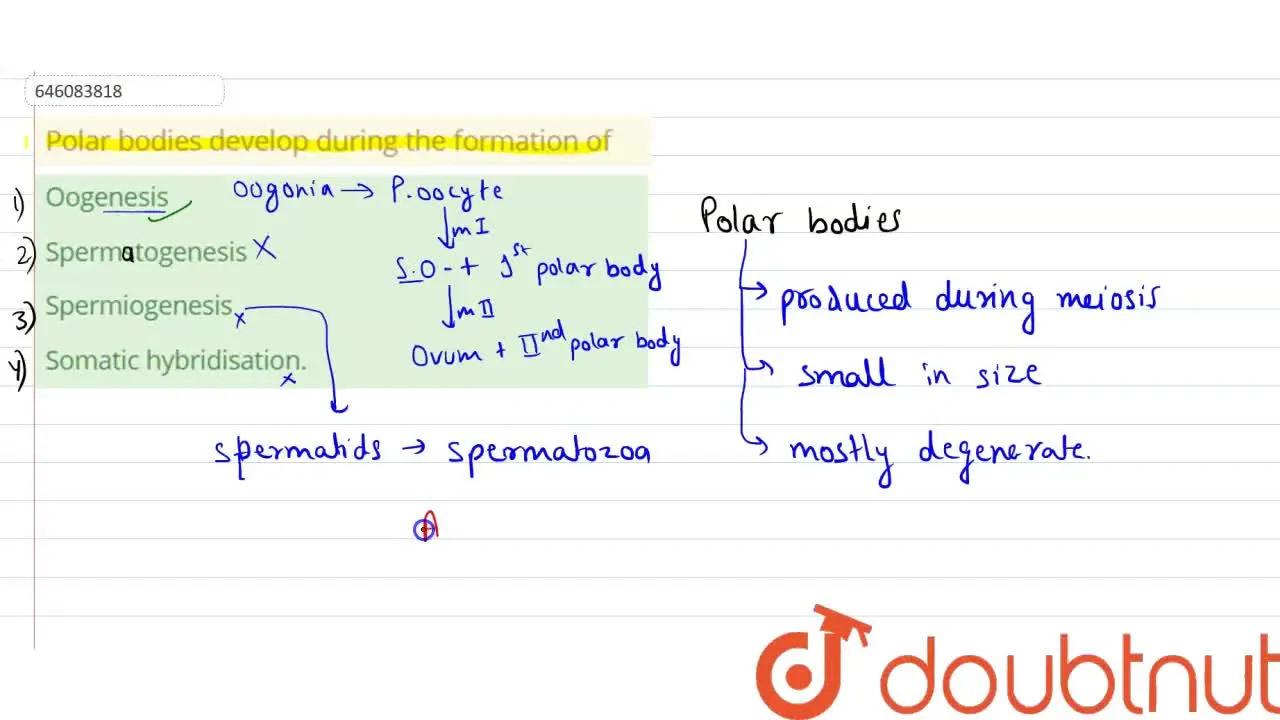 646083818
Polar bodies develop during the formation of
1) Oogenesis
oogonia → P.oocyte
↓ m I
S.O - + 1st polar body
↓ m II
Ovum + IInd polar body
2) Spermatogenesis X
3) Spermiogenesis x
4) Somatic hybridisation. x
spermatids → spermatozoa
A
Polar bodies
→ produced during meiosis
→ small in size
→ mostly degenerate.
doubtnut